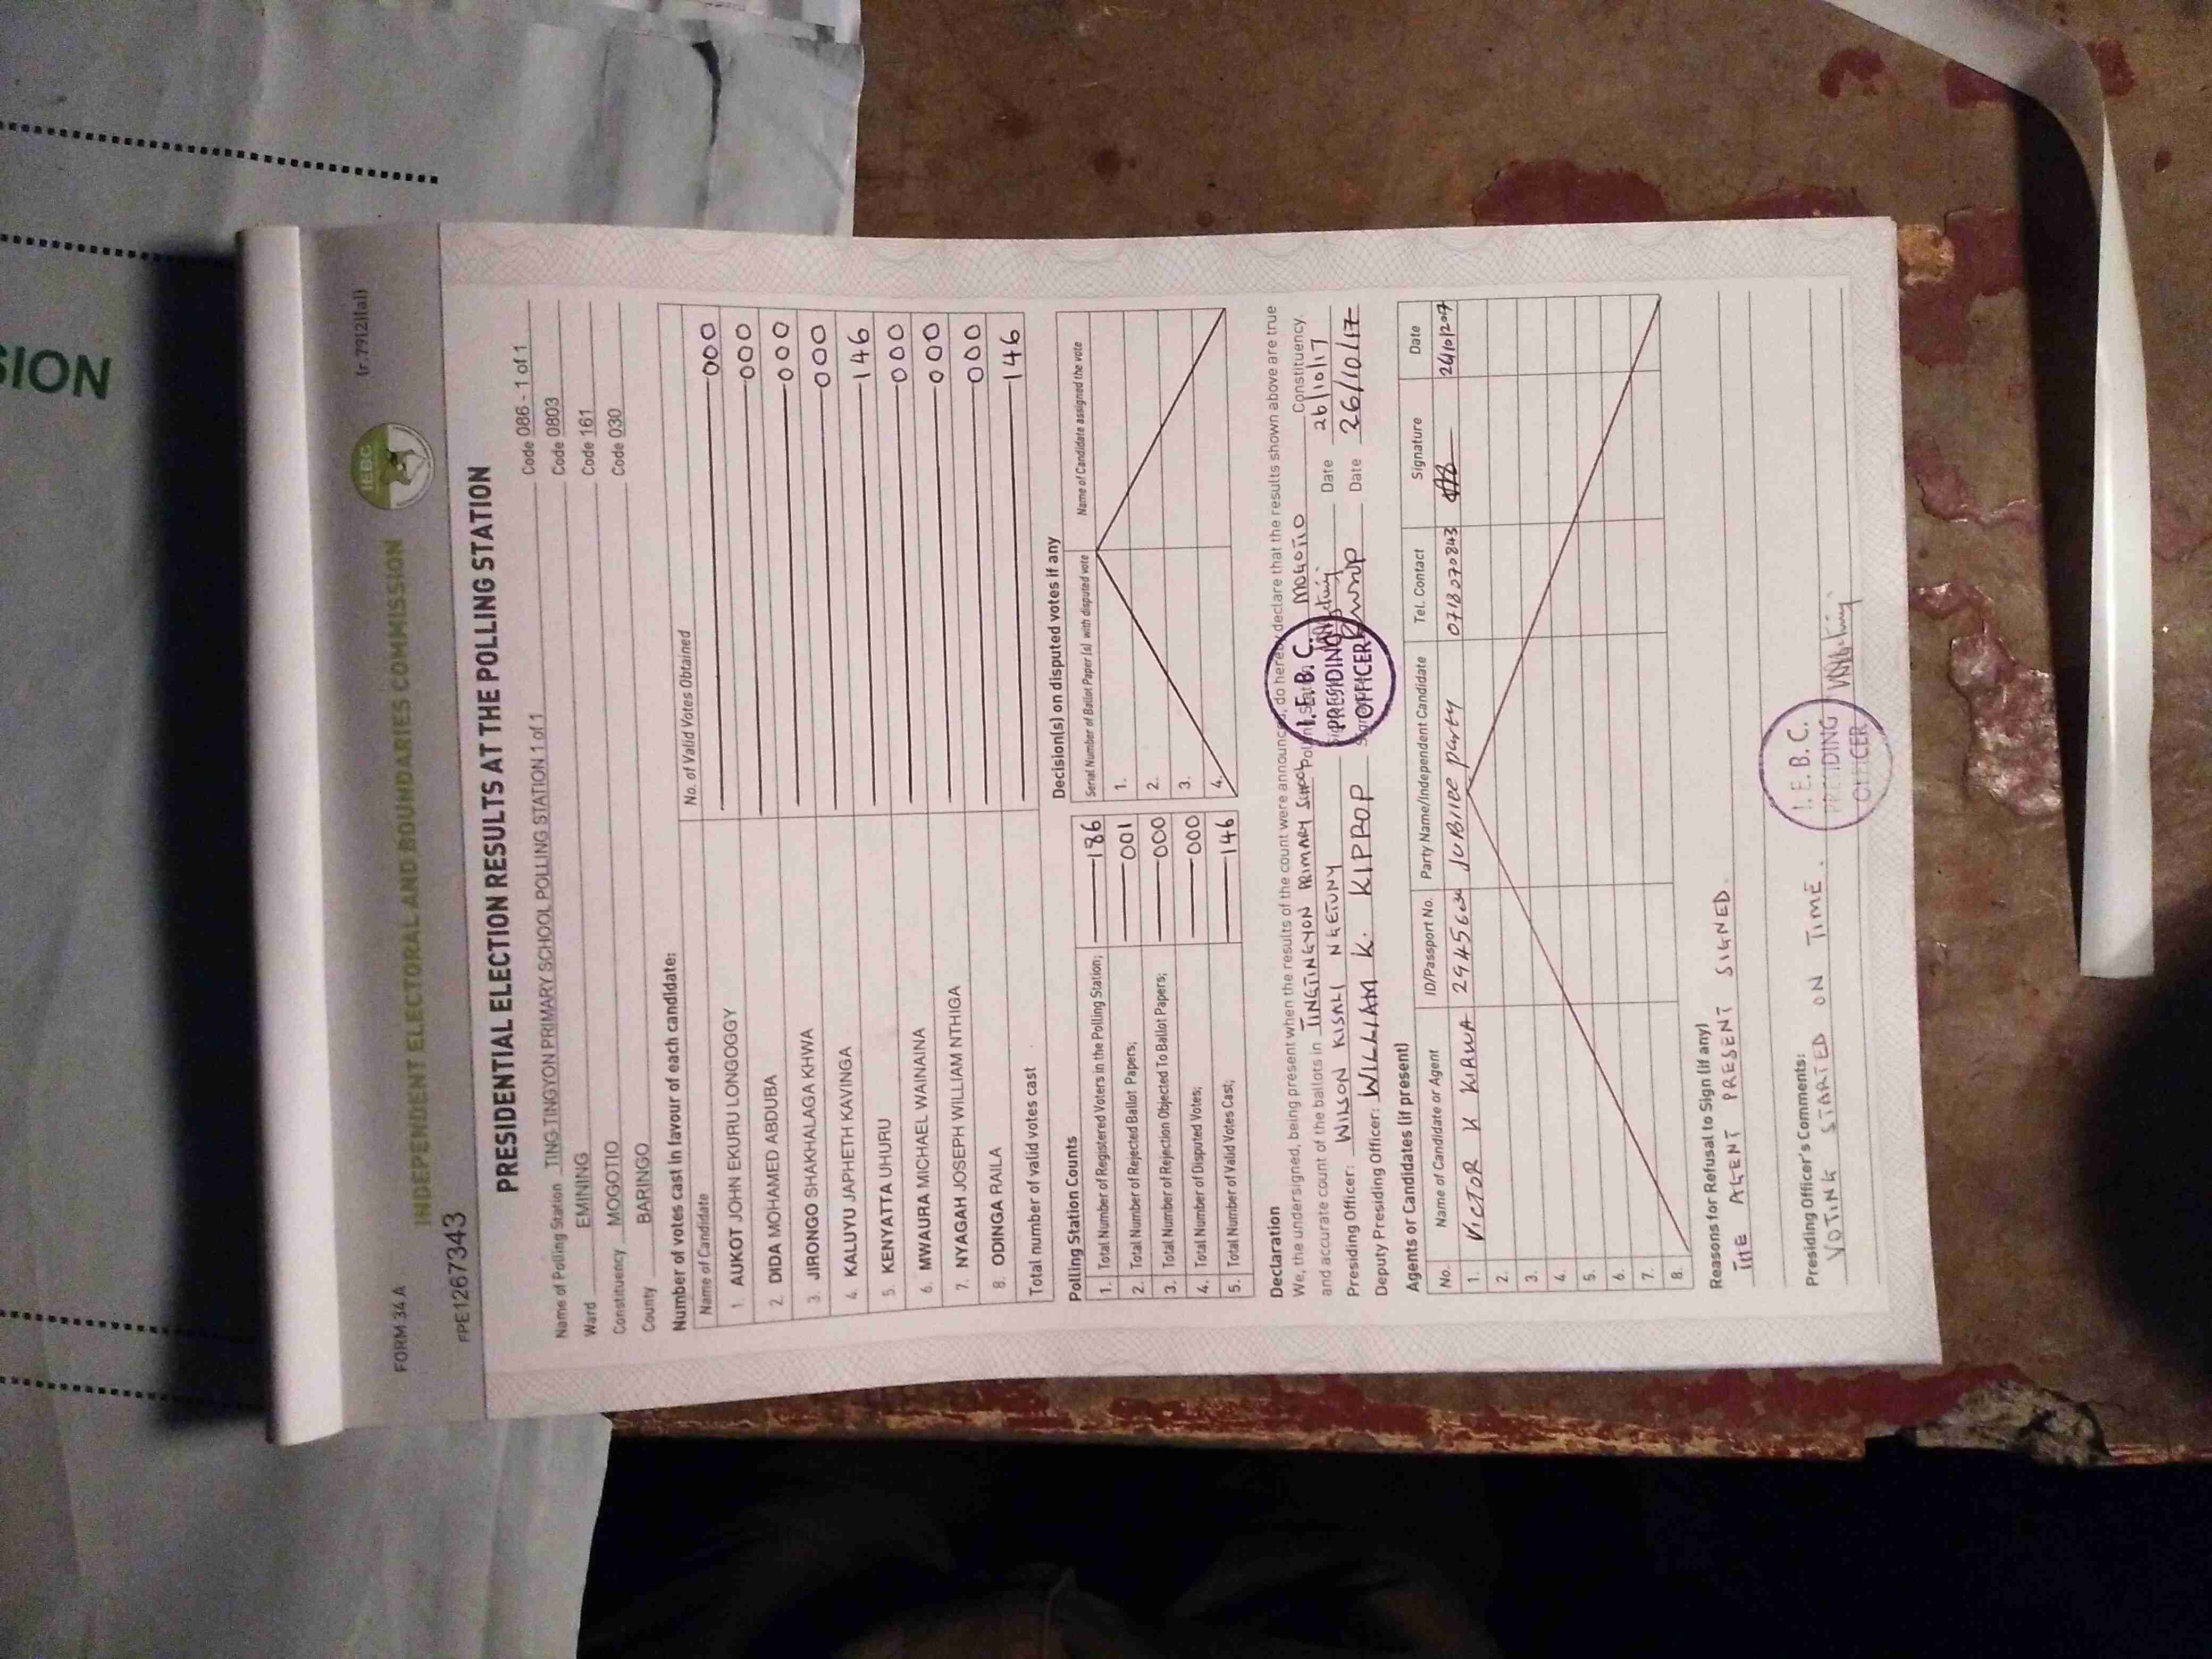 SION
FORM 34 A
(r.7912)(a))
IEBC
INDEPENDENT ELECTORAL AND BOUNDARIES COMMISSION
FPE1267343
PRESIDENTIAL ELECTION RESULTS AT THE POLLING STATION
Name of Polling Station TING-TINGYON PRIMARY SCHOOL POLLING STATION 1 of 1 Code 086 - 1 of 1
Ward EMINING Code 0803
Constituency MOGOTIO Code 161
County BARINGO Code 030
Number of votes cast in favour of each candidate:
Name of Candidate No. of Valid Votes Obtained
1. AUKOT JOHN EKURU LONGOGGY 000
2. DIDA MOHAMED ABDUBA 000
3. JIRONGO SHAKHALAGA KHWA 000
4. KALUYU JAPHETH KAVINGA 000
5. KENYATTA UHURU 146
6. MWAURA MICHAEL WAINAINA 000
7. NYAGAH JOSEPH WILLIAM NTHIGA 000
8. ODINGA RAILA 000
Total number of valid votes cast 146
Polling Station Counts
1. Total Number of Registered Voters in the Polling Station; 186
2. Total Number of Rejected Ballot Papers; 001
3. Total Number of Rejection Objected To Ballot Papers; 000
4. Total Number of Disputed Votes; 000
5. Total Number of Valid Votes Cast; 146
Decision(s) on disputed votes if any
Serial Number of Ballot Paper (s) with disputed vote Name of Candidate assigned the vote
1.
2.
3.
4.
Declaration
We, the undersigned, being present when the results of the count were announced, do hereby declare that the results shown above are true
and accurate count of the ballots in TINGTINGYON PRIMARY SCHOOL Polling Station MOGOTIO Constituency.
Presiding Officer: WILSON KISALI Date 26/10/17
Deputy Presiding Officer: WILLIAM K. KIPROP Date 26/10/17
I.E.B.C.
PRESIDING
OFFICER
Agents or Candidates (if present)
No. Name of Candidate or Agent ID/Passport No. Party Name/Independent Candidate Tel. Contact Signature Date
1. VICTOR K JUBILEE party 0718070843
2.
3.
4.
5.
6.
7.
8.
Reasons for Refusal to Sign (if any)
THE AGENT PRESENT SIGNED.
Presiding Officer's Comments:
VOTING STARTED ON TIME.
I.E.B.C.
PRESIDING
OFFICER